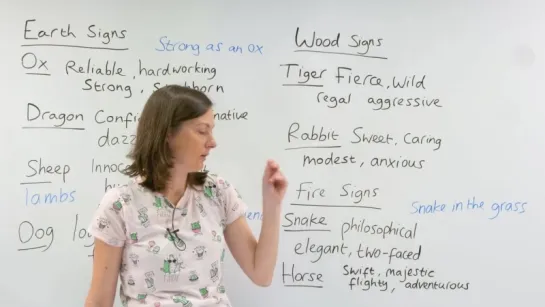 Earth Signs
Strong as an ox
Ox Reliable, hardworking
Strong,
Dragon
Sheep
lambs
Dog
Wood Signs
Tiger Fierce, Wild
regal aggressive
Rabbit Sweet, Caring
modest, anxious
Fire Signs
Snake in the grass
Snake philosophical
elegant, two-faced
Horse Swift, majestic
flighty, adventurous